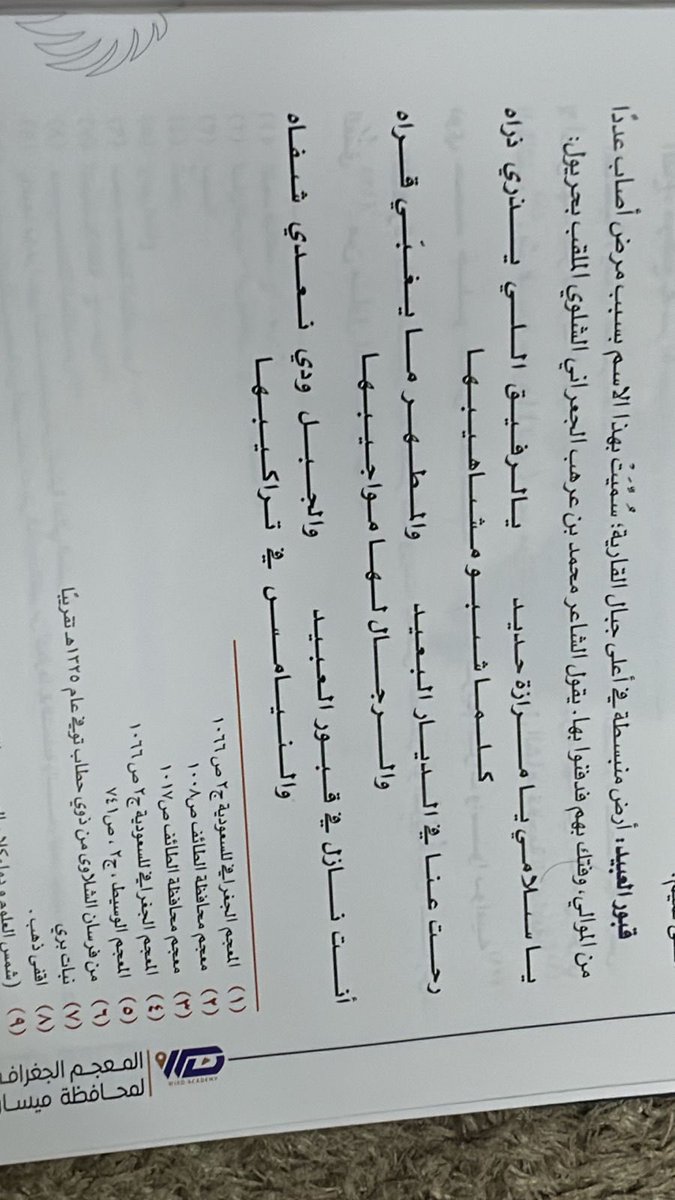 قبور العبيد: أرض منبسطة في أعلى جبال القارية؛ سُمِّيَتْ بهذا الاسم بسبب مرض أصاب عددًا
من الموالي، وفتك بهم فدفنوا بها. يقول الشاعر محمد بن عرهب الجعراني الشلوي الملقب بحربول:
يا سلامي يا مرازة حديد يالرفيق اللي يذري ذراه
كلما شب ومشاهيبها
رحت عنا في الديار البعيد والمطهر ما يغبَي قراه
والرجال لها مواجيبها
أنت نازل في قبور العبيد والجبل ودي نعدي شفاه
والنيامس في تراكيبها
(١) المعجم الجغرافي للسعودية ج٢ ص١٠٦٦
(٢) معجم محافظة الطائف ص١٠٠٨
(٣) معجم محافظة الطائف ص١٠١٧
(٤) المعجم الجغرافي للسعودية ج٢ ص١٠٦٦
(٥) المعجم الوسيط، ج٢، ص٧٤١
(٦) من فرسان الشلاوى من ذوي حطاب توفي عام ١٣٢٥هـ تقريبًا
(٧) نبات بري
(٨) اقفى ذهب.
(٩) (شمس العلوم
المعجم الجغرافي
لمحافظة ميسان
WIRD ACADEMY